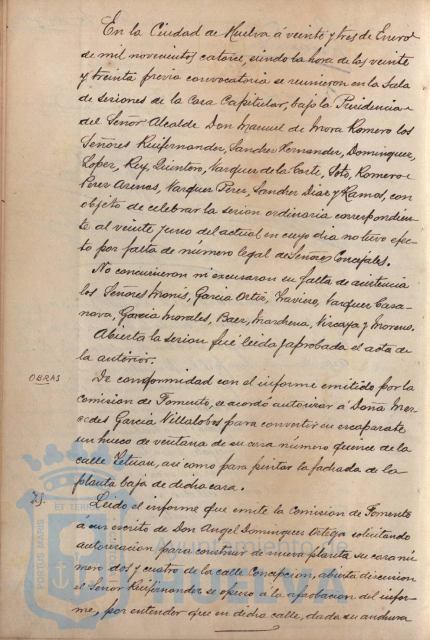 En la Ciudad de Huelva á veinte y tres de Enero
de mil novecientos catorce, siendo la hora de las veinte
y treinta previa convocatoria se reunieron en la Sala
de sesiones de la Casa Capitular, bajo la Presidencia
del Señor Alcalde Don Manuel de Mora Romero los
Señores Ruifernandez, Sanchez Hernandez, Dominguez,
Lopez, Rey, Quintero, Vazquez de la Corte, Soto, Romero
Perez Arenas, Vazquez Perez, Sanchez Diaz y Ramos, con
objeto de celebrar la sesion ordinaria correspondien
te al veinte y uno del actual en cuyo dia no tuvo efec
to por falta de número legal de Señores Concejales.
No concurrieron ni excusaron su falta de asistencia
los Señores Monís, Garcia Ortiz, Vazquez Casa-
nova, Garcia Morales, Baez, Marchena, Vizcaya y Moreno.
Abierta la sesion fué leida y aprobada el acta de
la anterior.
OBRAS
De conformidad con el informe emitido por la
Comision de Fomento, se acordó autorizar á Doña Mer-
cedes Garcia Villalobos para convertir en escaparate
un hueco de ventana de su casa número quince de la
calle Tetuan, asi como para pintar la fachada de la
planta baja de dicha casa.
Id.
Leido el informe que emite la Comision de Fomento
á un escrito de Don Angel Dominguez Ortega solicitando
autorizacion para construir de nueva planta su casa nú
mero dos y cuatro de la calle Concepcion, abierta discusion
el Señor Ruifernandez se opuso á la aprobacion del infor-
me, por entender que en dicha calle, dada su anchura
Ayuntamiento de
Huelva
PORTUS MARIS
ET TERRAE